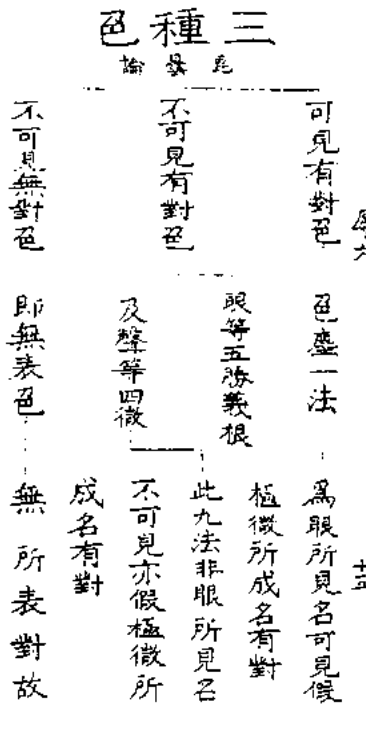 三種色
毘曇論
可見有對色
不可見有對色
不可見無對色
色塵一法
眼等五勝義根
及聲等四微
即無表色
為眼所見名可見假
極微所成名有對
此九法非眼所見名
不可見亦假極微所
成名有對
無所表對故